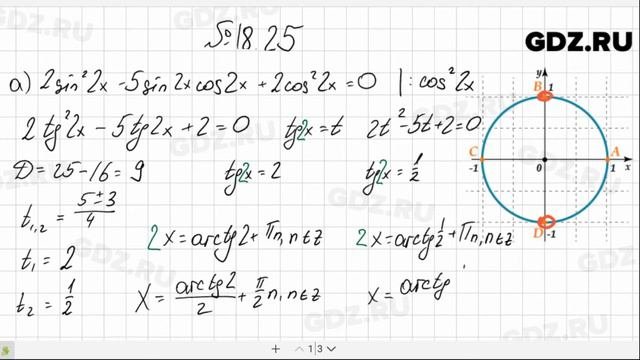 №18.25
GDZ.RU
а) 2sin²2x - 5sin2x cos2x + 2cos²2x = 0 | : cos²2x
2tg²2x - 5tg2x + 2 = 0 tg2x = t 2t² - 5t + 2 = 0
D = 25 - 16 = 9 tg2x = 2 tg2x = 1/2
t₁,₂ = (5 ± 3)/4
2x = arctg2 + πn, n∈z 2x = arctg 1/2 + πn, n∈z
t₁ = 2
t₂ = 1/2 x = arctg2/2 + π/2 n, n∈z x = arctg
y
B 1
C A
-1 0 1 x
D -1
+ 1|3